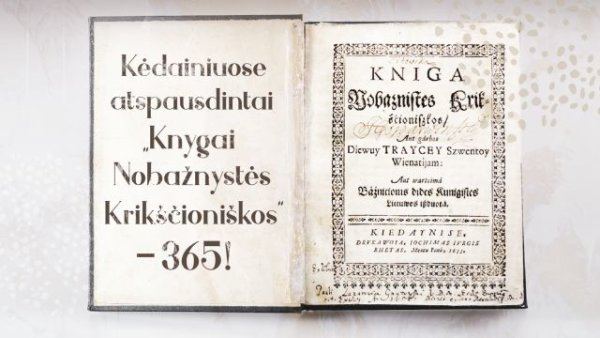 Kėdainiuose
atspausdintai
„Knygai
Nobažnystės
Krikščioniškos“
–365!
KNIGA
Nobaznistes Krik-
ścioniszkos/
Ant garbos
Diewuy TRAYCEY Szwentoy
Wienatijam:
Ant wartoima
Báźnićiomis dides Kunigistes
Lituwos iżduota.
KIEDAYNISE,
DRUKAWOIA, IOCHIMAS IURGIS
RHETAS, Metu Pona, 1653.